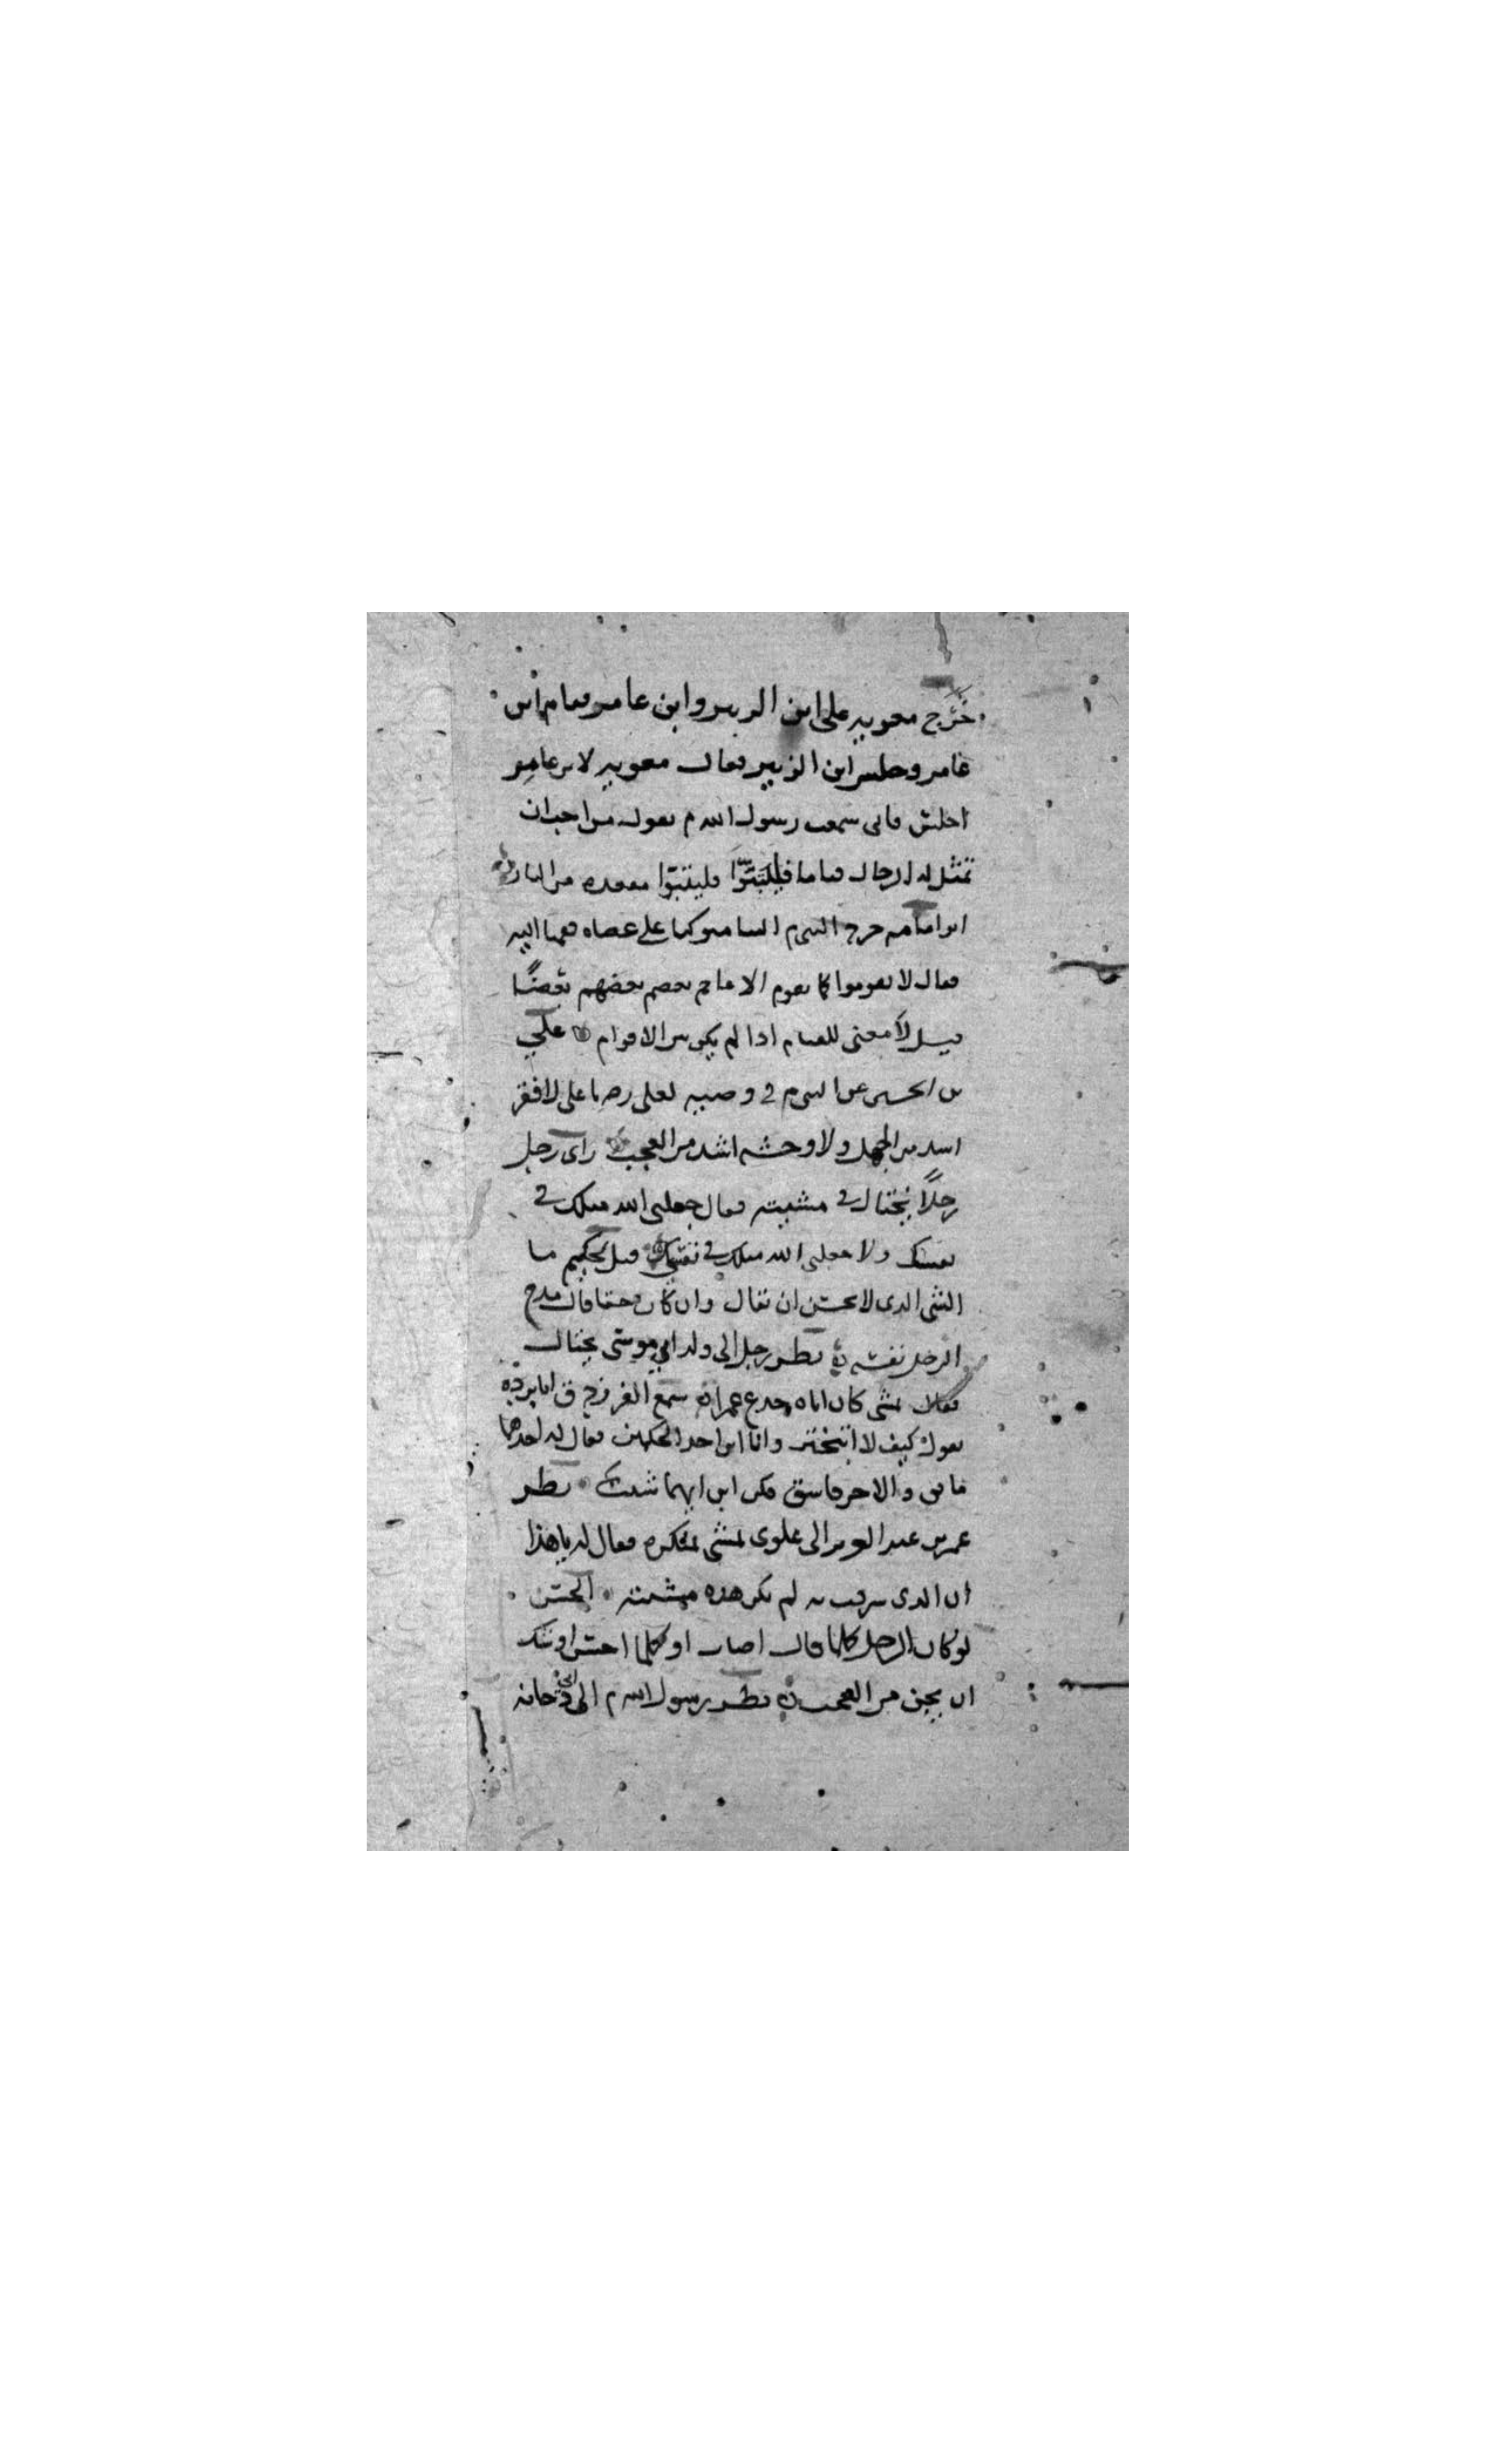 خرج معويه على ابن الزبير وابن عامر فقام ابن
عامر وجلس ابن الزبير فقال معويه لابن عامر
اجلس فانى سمعت رسول الله م يقول من احب ان
تمثل له الرجال قياما فليتبوّا فليتبوّا مقعده من النار
ابو امامه خرج النبى م الينا متوكيا على عصاه فقمنا اليه
فقال لا تقوموا كما يقوم الاعاجم بعضهم بعضًا
قيل لا معنى للقيام اذا لم يكن من الاقوام على
بن الحسين عن النبى م فى وصيته لعلى رضه يا على لا فقر
اشد من الجهل ولا وحشه اشد من العجب راى رجل
رجلًا يختال فى مشيته فقال جعلنى الله مثلك فى
نفسك ولا جعلنى الله مثلك فى نفسى قيل لحكيم ما
الشى الذى لا يحسن ان يقال وان كان حقا قال مدح
الرجل نفسه نظر رجل الى ولد ابى موسى يختال
فقال يمشى كان اباه خدع عمرا سمع الفرزدق ابا برده
يقول كيف لا اتبختر وانا ابن احد الحكمين فقال له احدهما
مايق والاخر فاسق فكن ابن ايهما شئت نظر
عمر بن عبد العزيز الى علوى يمشى مشيه منكره فقال له يا هذا
ان الذى شرفت به لم تكن هذه مشيته الحسن
لو كان الرجل كلما قال اصاب او كلما احسن اوشك
ان يجن من العجب نظر رسول الله م الى ابى دجانه